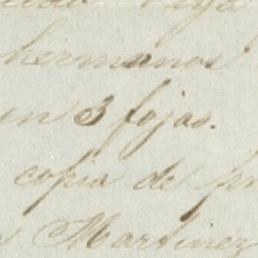 hermanos
en 3 fojas.
copia de
Martinez